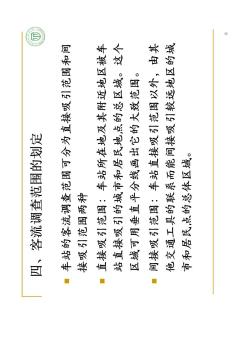 四、客流调查范围的划定
车站的客流调查范围可分为直接吸引范围和间
接吸引范围两种
直接吸引范围：车站所在地及其附近地区被车
站直接吸引的城市和居民地点的总区域。这个
区域可用垂直平分线画出它的大致范围。
间接吸引范围：车站直接吸引范围以外，由其
他交通工具的联系而能间接吸引较远地区的城
市和居民点的总体区域。